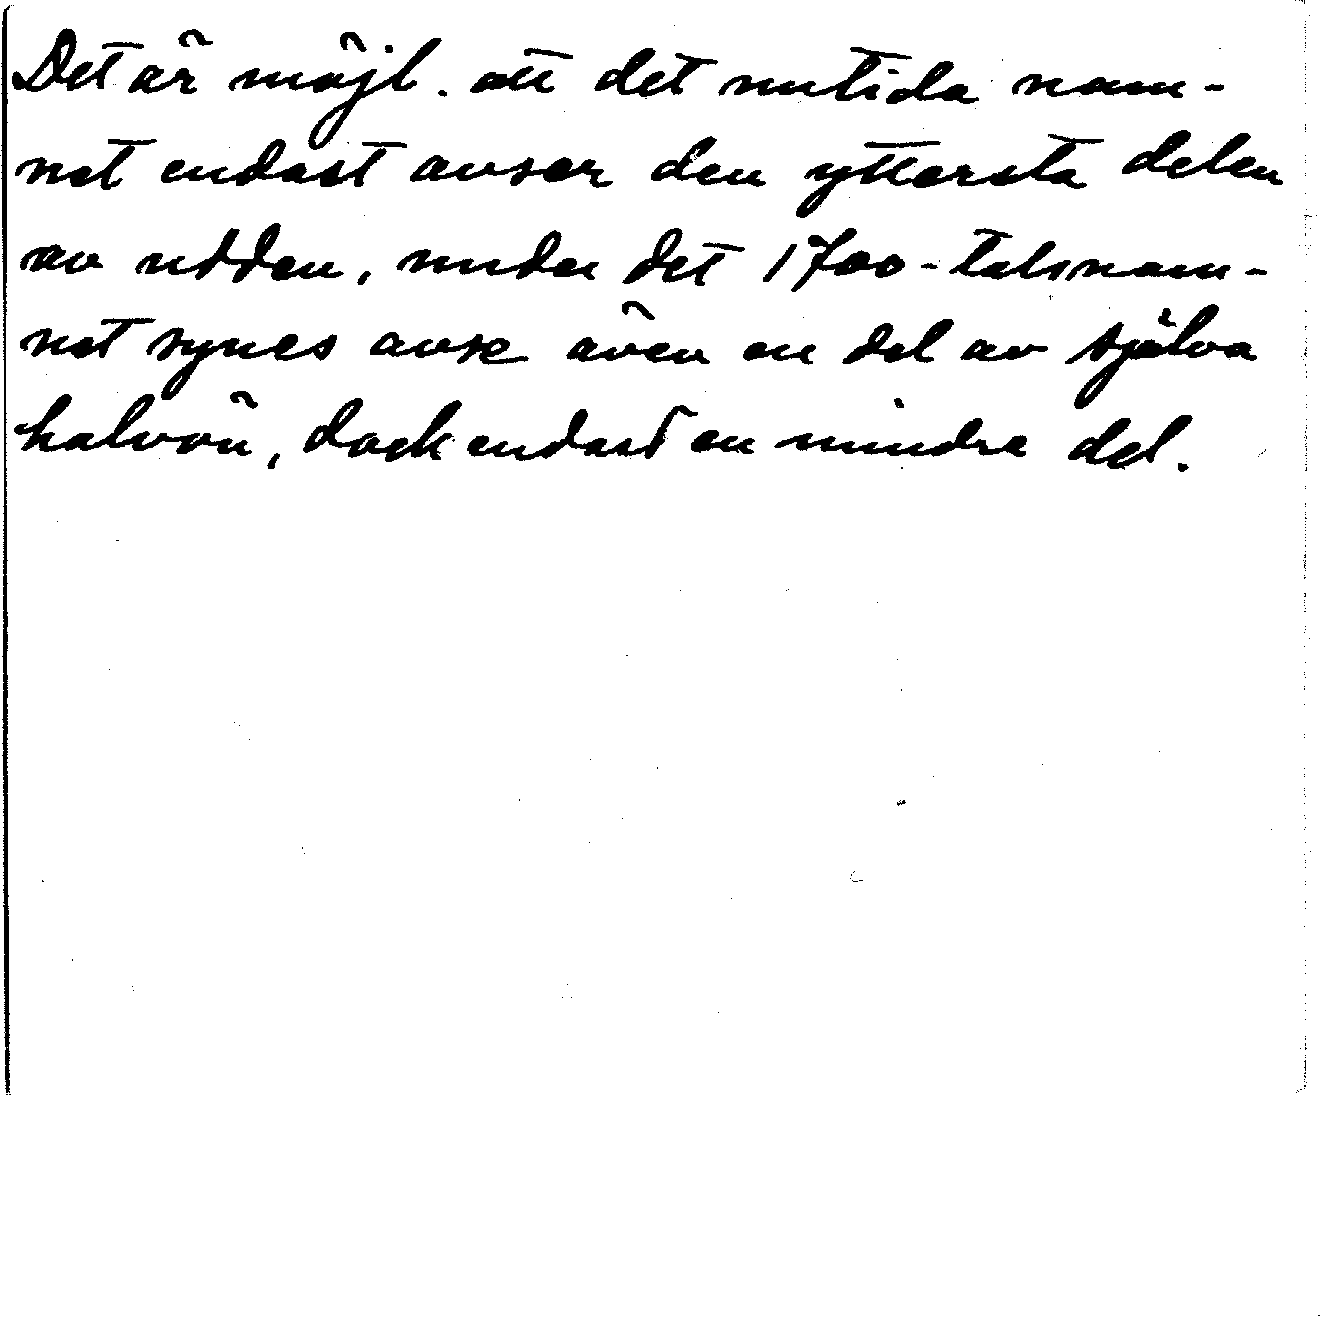 Det är möjl. att det nutida nam-
net endast avser den yttersta delen
av udden, medan det 1700-talsnam-
net synes avse även en del av själva
halvön, dock endast en mindre del.